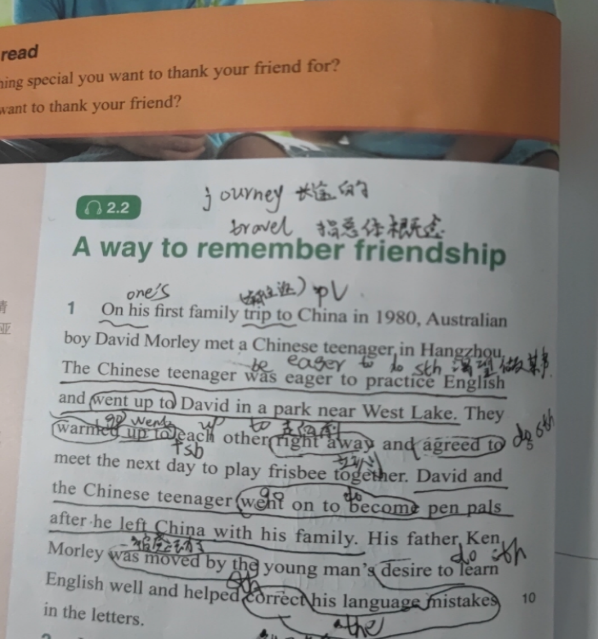 read
ning special you want to thank your friend for?
want to thank your friend?
2.2
journey 长途的
travel 指总体概述
A way to remember friendship
one's
pl
1 On his first family trip to China in 1980, Australian
boy David Morley met a Chinese teenager in Hangzhou.
be eager to do sth 渴望做某事
The Chinese teenager was eager to practice English
and went up to David in a park near West Lake. They
go went up to
warmed up to each other right away and agreed to do sth
+sb 立刻
meet the next day to play frisbee together. David and
go do
the Chinese teenager went on to become pen pals
after he left China with his family. His father, Ken
do sth
Morley was moved by the young man's desire to learn
sth
English well and helped correct his language mistakes 10
in the letters.